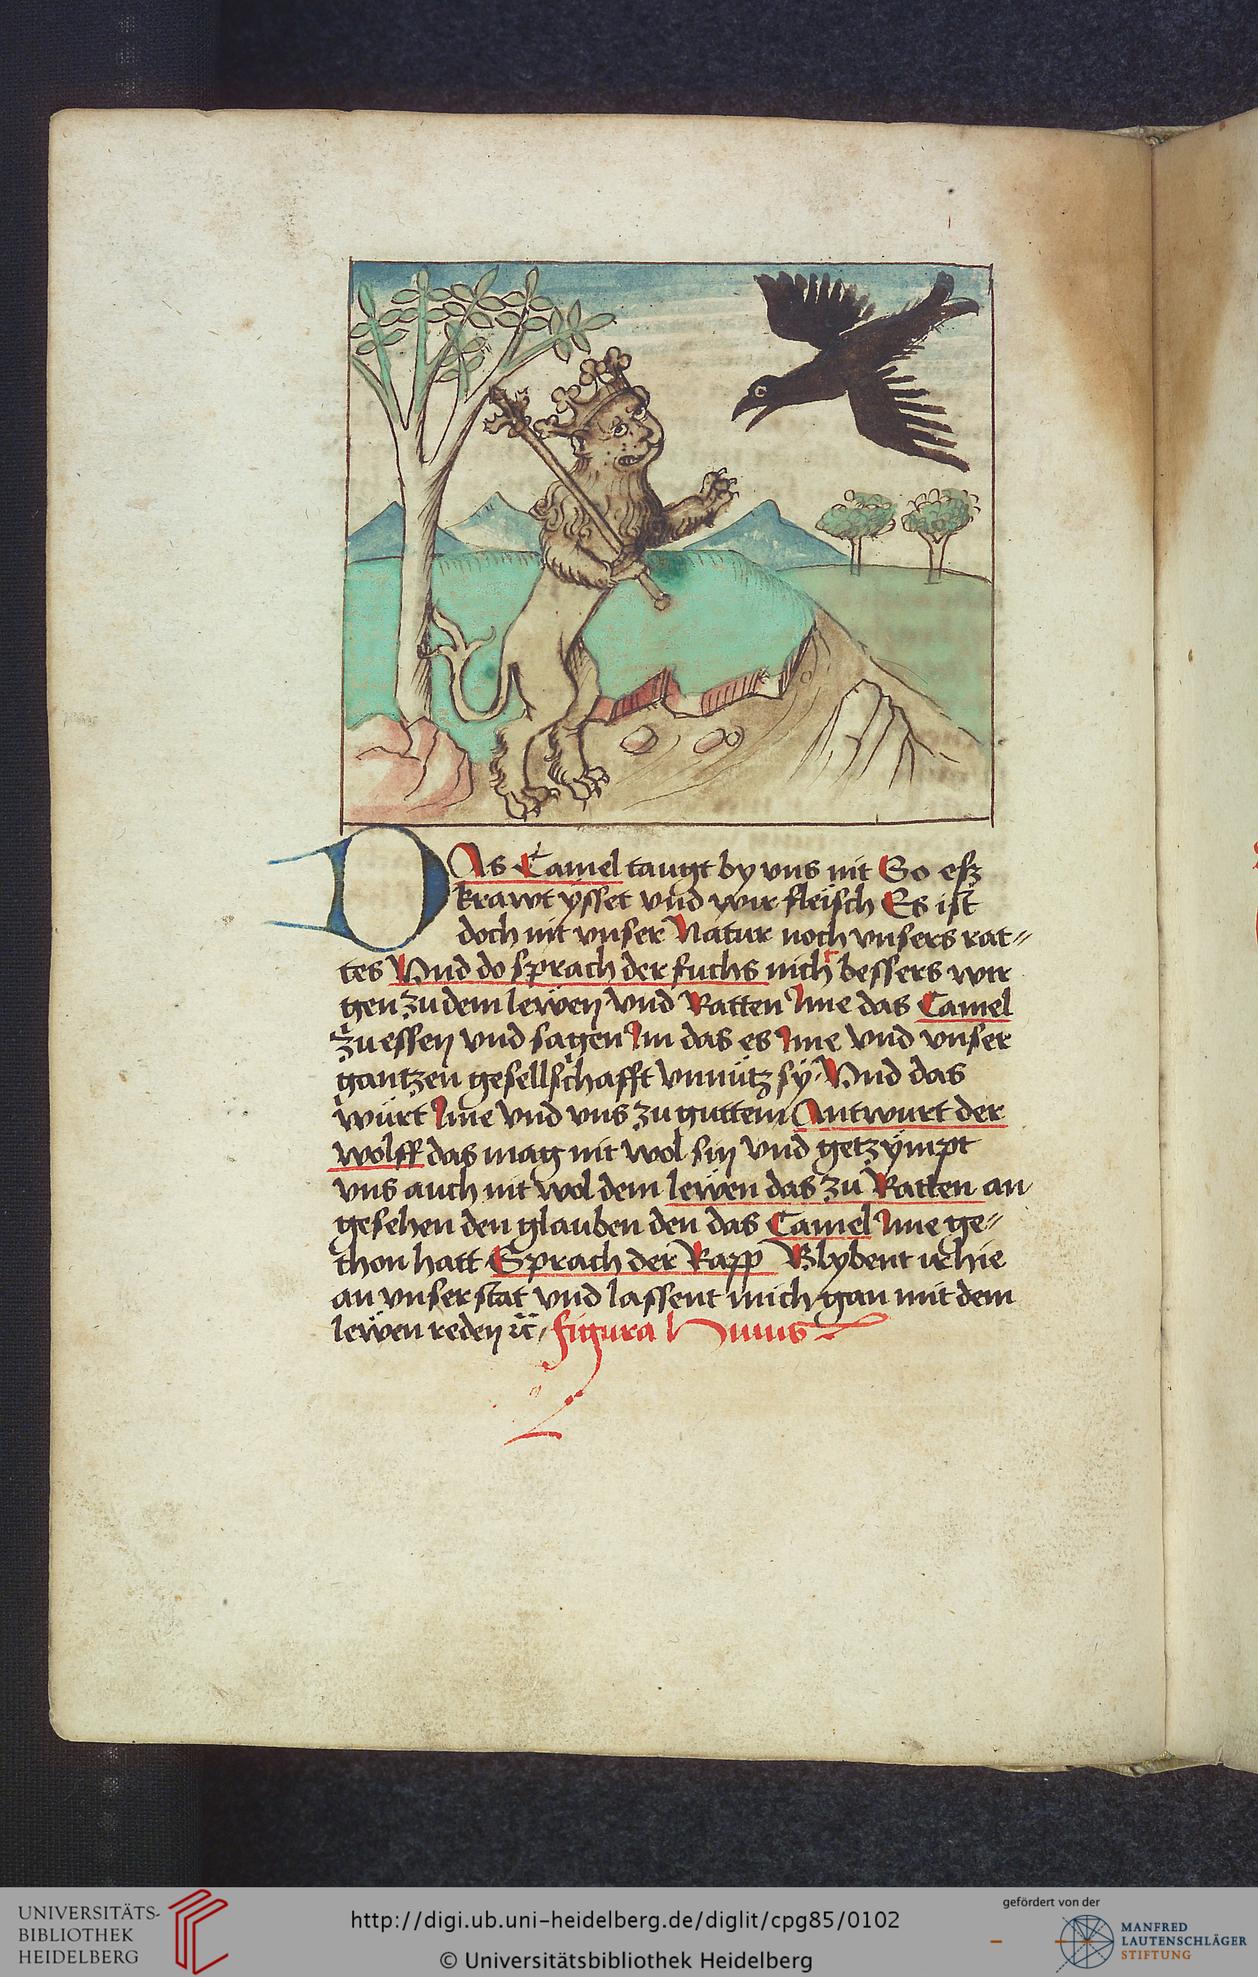 DAs Camel taugt by vns nit So esz
krawt ysset vnd wir fleisch Es ist
doch nit vnser Natur noch vnsers rat-
tes Vnd do sprach der fuchs nicht bessers wir
gen zu dem lewen vnd Ratten Ime das Camel
zu essen vnd sagen Im das es Ime vnd vnser
gantzen gesellschafft vnnütz sy Vnd das
würt Ime vnd vns zu guttem Antwurt der
wolff das mag nit wol sin vnd getzympt
vns auch nit wol dem lewen das zu Ratten an
gesehen den glauben den das Camel Ime ge-
thon hatt Sprach der Rapp Blybent ir hie
an vnser stat vnd lassent mich gan mit dem
lewen reden ꝛc figura Huius
UNIVERSITÄTS-
BIBLIOTHEK
HEIDELBERG
http://digi.ub.uni-heidelberg.de/diglit/cpg85/0102
© Universitätsbibliothek Heidelberg
gefördert von der
MANFRED
LAUTENSCHLÄGER
STIFTUNG